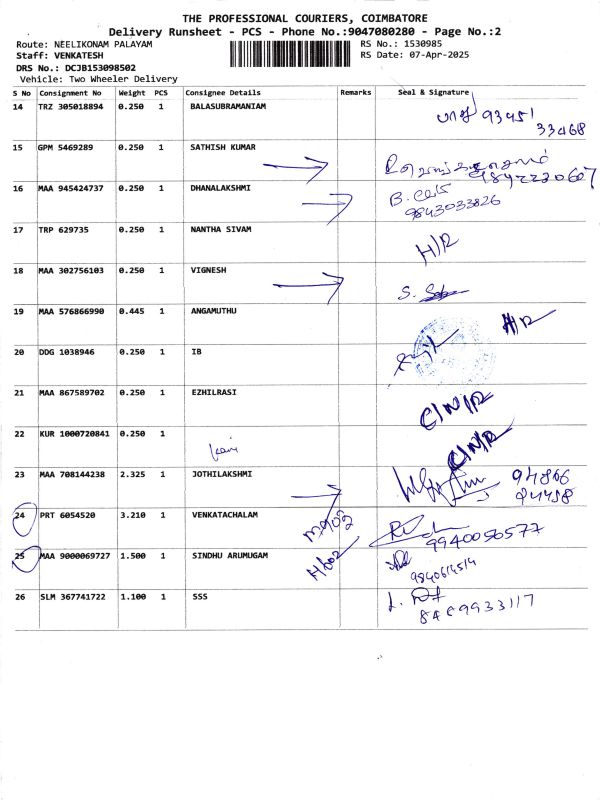 THE PROFESSIONAL COURIERS, COIMBATORE
Delivery Runsheet - PCS - Phone No.:9047080280 - Page No.:2
Route: NEELIKONAM PALAYAM
RS No.: 1530985
Staff: VENKATESH
RS Date: 07-Apr-2025
DRS No.: DCJB153098502
Vehicle: Two Wheeler Delivery
S No Consignment No Weight PCS Consignee Details Remarks Seal & Signature
14 TRZ 305018894 0.250 1 BALASUBRAMANIAM
93451
33468
15 GPM 5469289 0.250 1 SATHISH KUMAR
9842230607
16 MAA 945424737 0.250 1 DHANALAKSHMI
9843033826
17 TRP 629735 0.250 1 NANTHA SIVAM H/R
18 MAA 302756103 0.250 1 VIGNESH
19 MAA 576866990 0.445 1 ANGAMUTHU H/R
20 DDG 1038946 0.250 1 IB
21 MAA 867589702 0.250 1 EZHILRASI C/N/R
22 KUR 1000720841 0.250 1 C/N/R
23 MAA 708144238 2.325 1 JOTHILAKSHMI
24 PRT 6054520 3.210 1 VENKATACHALAM 9940056577
25 MAA 9000069727 1.500 1 SINDHU ARUMUGAM
26 SLM 367741722 1.100 1 SSS